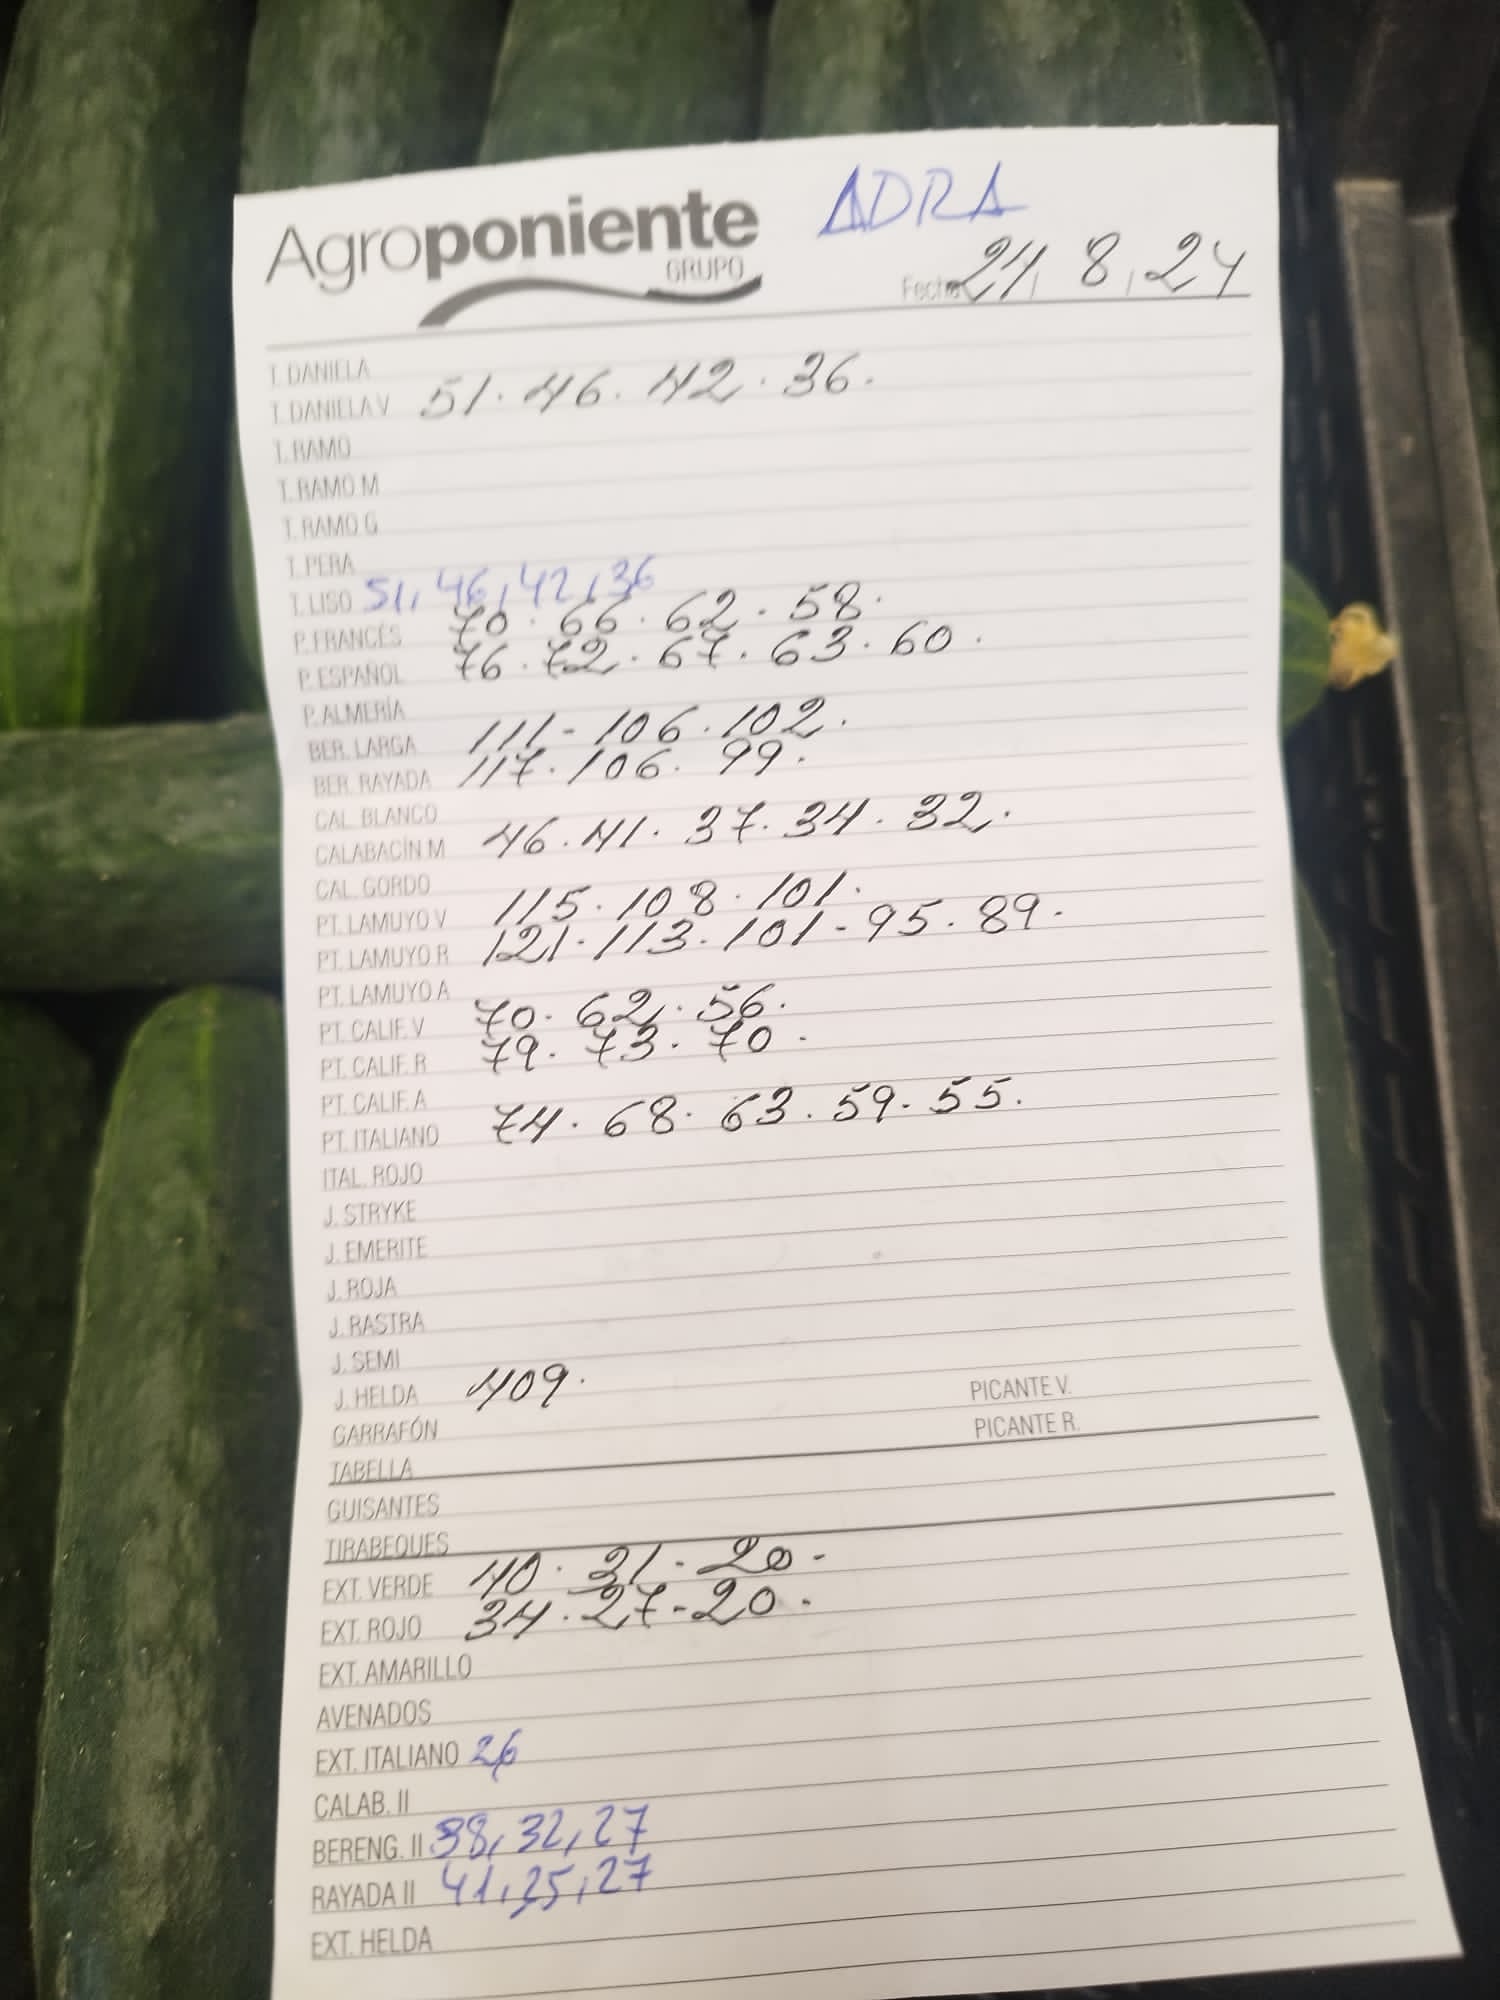 Agroponiente ADRA
GRUPO
Fecha 24, 8, 24
T. DANIELA
T. DANIELA V 51. 46. 42. 36.
T. RAMO
T. RAMO M
T. RAMO G
T. PERA
T. LISO 51, 46, 42, 36
P. FRANCÉS 70. 66. 62. 58.
P. ESPAÑOL 76. 72. 67. 63. 60.
P. ALMERÍA
BER. LARGA 111- 106. 102.
BER. RAYADA 117. 106. 99.
CAL. BLANCO
CALABACÍN M 46. 41. 37. 34. 32.
CAL. GORDO
PT. LAMUYO V 115. 108. 101.
PT. LAMUYO R 121. 113. 101- 95. 89.
PT. LAMUYO A
PT. CALIF. V 70. 62. 56.
PT. CALIF. R 79. 73. 70.
PT. CALIF. A
PT. ITALIANO 74. 68. 63. 59. 55.
ITAL. ROJO
J. STRYKE
J. EMERITE
J. ROJA
J. RASTRA
J. SEMI
J. HELDA 409. PICANTE V.
GARRAFÓN PICANTE R.
TABELLA
GUISANTES
TIRABEQUES
EXT. VERDE 40. 31- 20-
EXT. ROJO 34. 27-20.
EXT. AMARILLO
AVENADOS
EXT. ITALIANO 26
CALAB. II
BERENG. II 38, 32, 27
RAYADA II 41, 27
EXT. HELDA